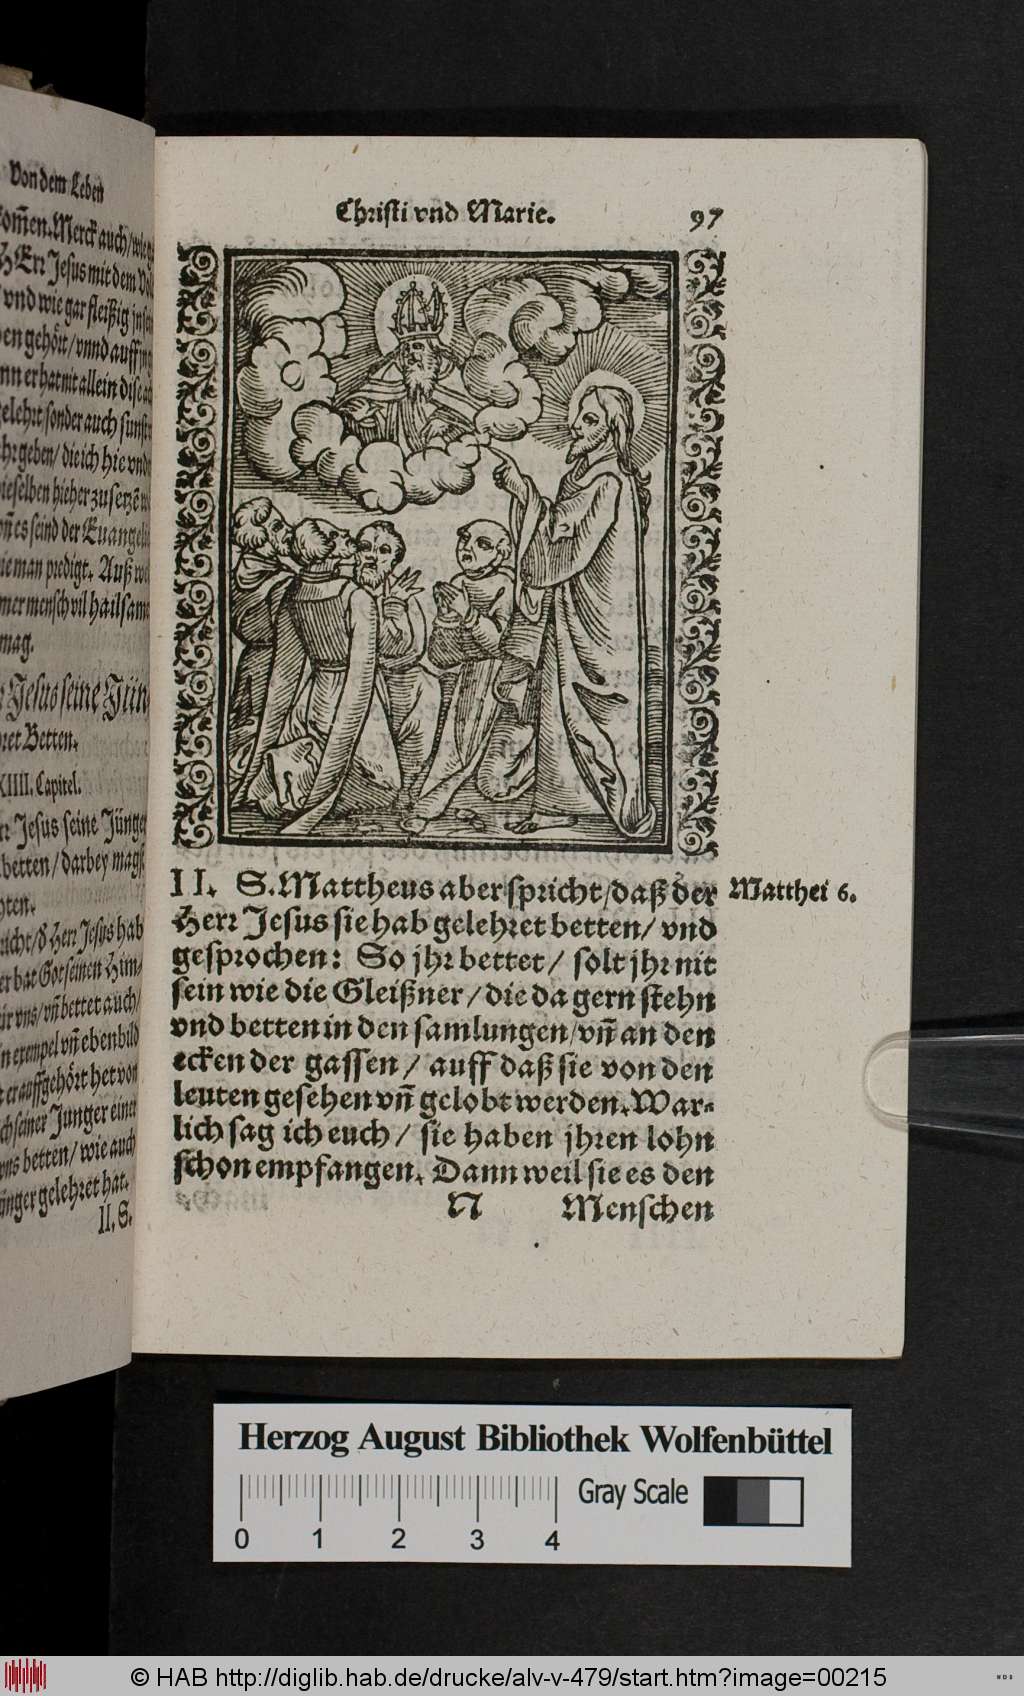 Von dem Leben
kom̃en. Merck auch/ wie
HErr Jesus mit dem
vnd wie gar fleißig
gehört/ vnnd auff
er hat nit allein dise
gelehrt sonder auch sunst
geben/ die ich hie vnd
dieselben hieher zu setzē
es seind der Euangeli
man prediget. Auß
mensch vil hailsam
mag.
Jesus seine Jün
Betten.
XIIII. Capitel.
Jesus seine Jünger
betten/ darbey magst

d̄ Herr Jesus hab
er bat Got seinen Him-
vns/ vñ bettet auch/
exempel vñ ebenbild
er auffgehört het von
seiner Junger einer
vns betten/ wie auch
Jünger gelehret hat.
II. S.
Christi vnd Marie.
97
II. S. Mattheus aber spricht/ daß der
Herr Jesus sie hab gelehret betten/ vnd
gesprochen: So jhr bettet/ solt jhr nit
sein wie die Gleißner/ die da gern stehn
vnd betten in den samlungen/ vñ an den
ecken der gassen/ auff daß sie von den
leuten gesehen vñ gelobt werden. War-
lich sag ich euch/ sie haben jhren lohn
schon empfangen. Dann weil sie es den
N Menschen
Matthei 6.
Herzog August Bibliothek Wolfenbüttel
0 1 2 3 4
Gray Scale
© HAB http://diglib.hab.de/drucke/alv-v-479/start.htm?image=00215